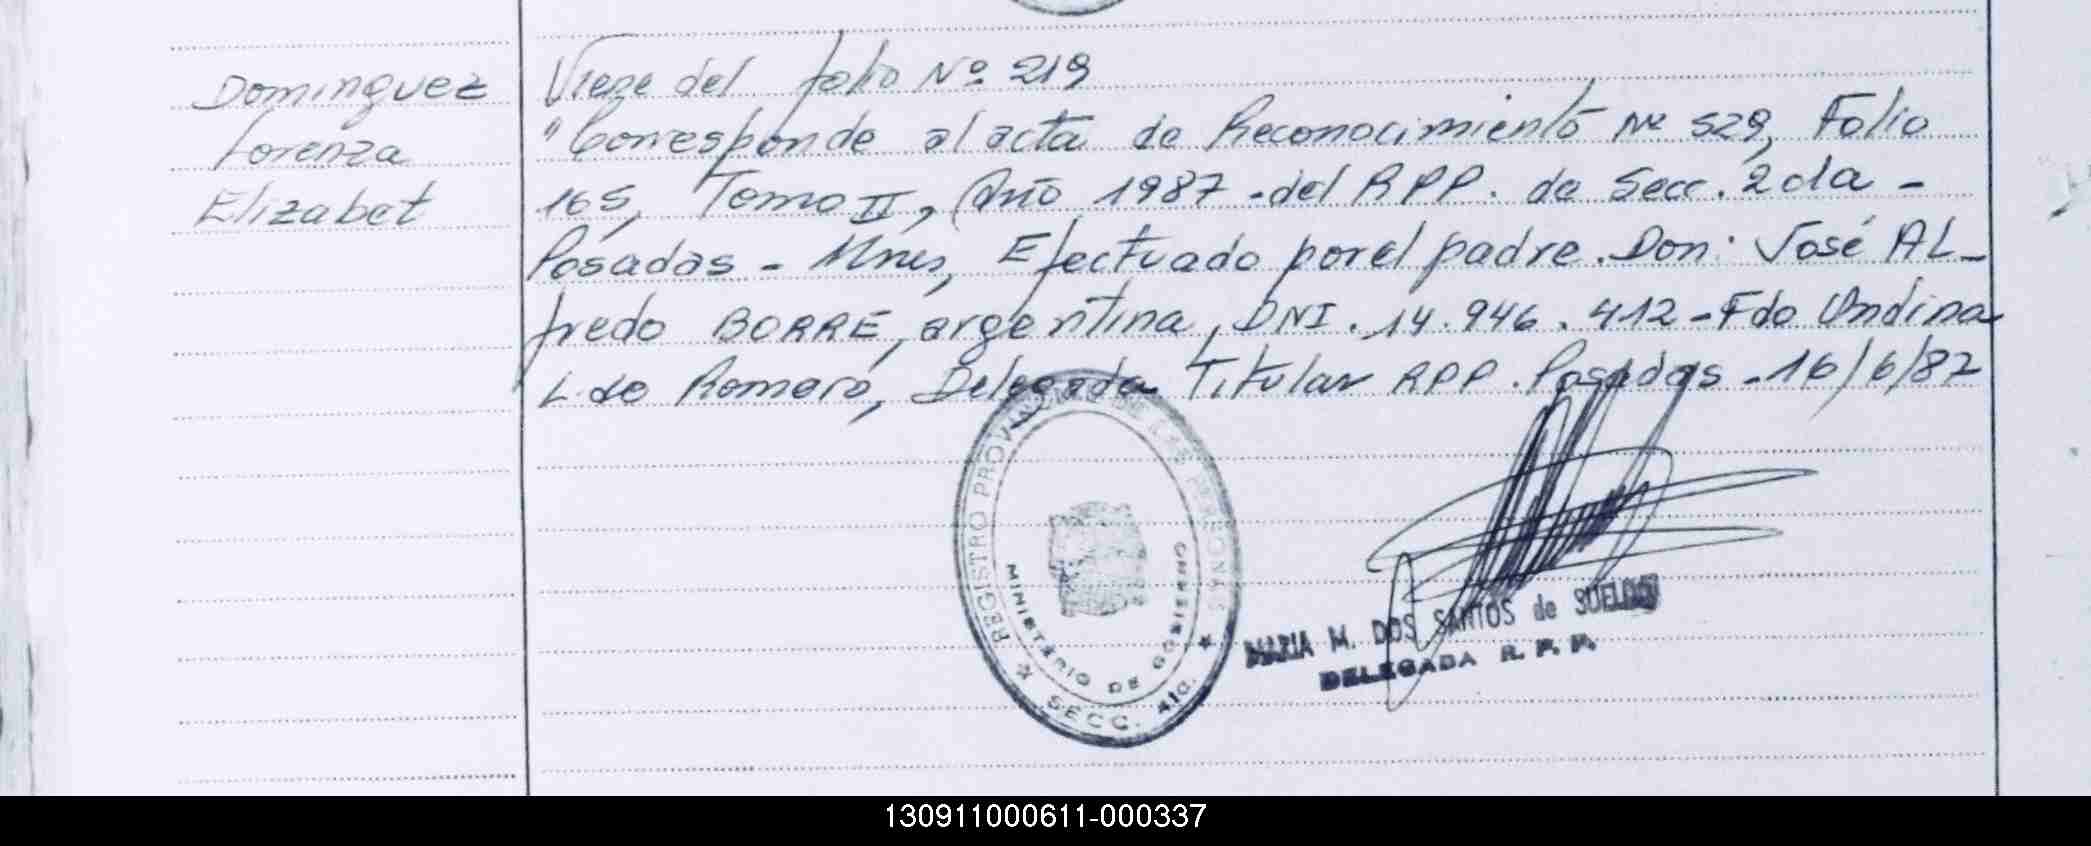 Dominguez
Lorenza
Elizabet
Viene del folio Nº 219
"Corresponde al acta de Reconocimiento Nº 529, Folio
165, Tomo II, Año 1987 - del RPP. de Secc. 2da -
Posadas - Mnes, Efectuado por el padre. Don: José AL-
fredo BORRE, argentina, DNI. 14.946.412 - Fdo Undina
L. de Romero, Delegada Titular RPP. Posadas - 16/6/87
REGISTRO PROVINCIAL DE LAS PERSONAS
MINISTERIO DE GOBIERNO
SECC. 41a.
MARIA M. DOS SANTOS de
DELEGADA R. P. P.
130911000611-000337